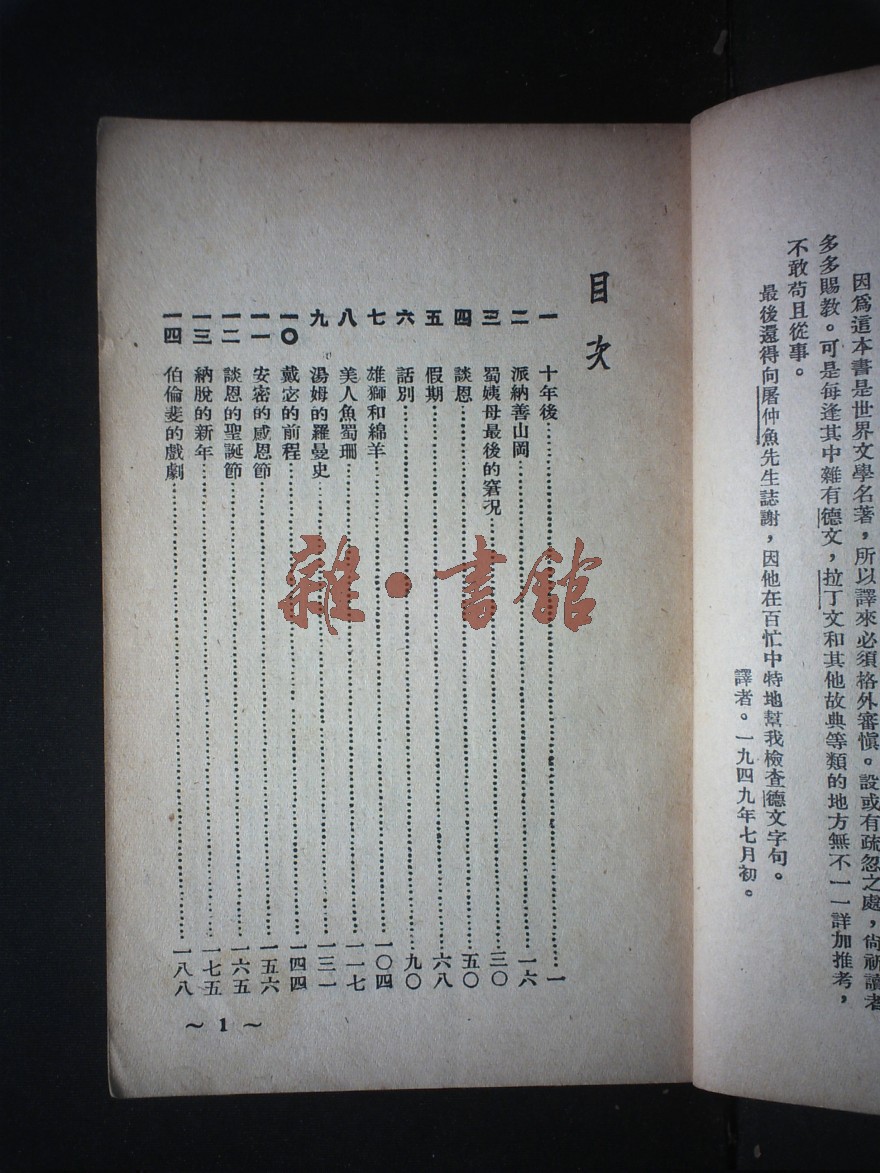 因爲這本書是世界文學名著，所以譯來必須格外審愼。設或有疏忽之處，尙祈讀者
多多賜教。可是每逢其中雜有德文，拉丁文和其他故典等類的地方無不一一詳加推考，
不敢苟且從事。
最後還得向屠仲魚先生誌謝，因他在百忙中特地幫我檢查德文字句。
譯者。一九四九年七月初。
目次
一 十年後 一
二 派納善山岡 一六
三 蜀姨母最後的窘況 三〇
四 談恩 五〇
五 假期 六八
六 話別 九〇
七 雄獅和綿羊 一〇四
八 美人魚蜀珊 一一七
九 湯姆的羅曼史 一三一
一〇 戴宓的前程 一四四
一一 安密的感恩節 一五六
一二 談恩的聖誕節 一六五
一三 納脫的新年 一七五
一四 伯倫斐的戲劇 一八八
～ 1 ～
雜·書館